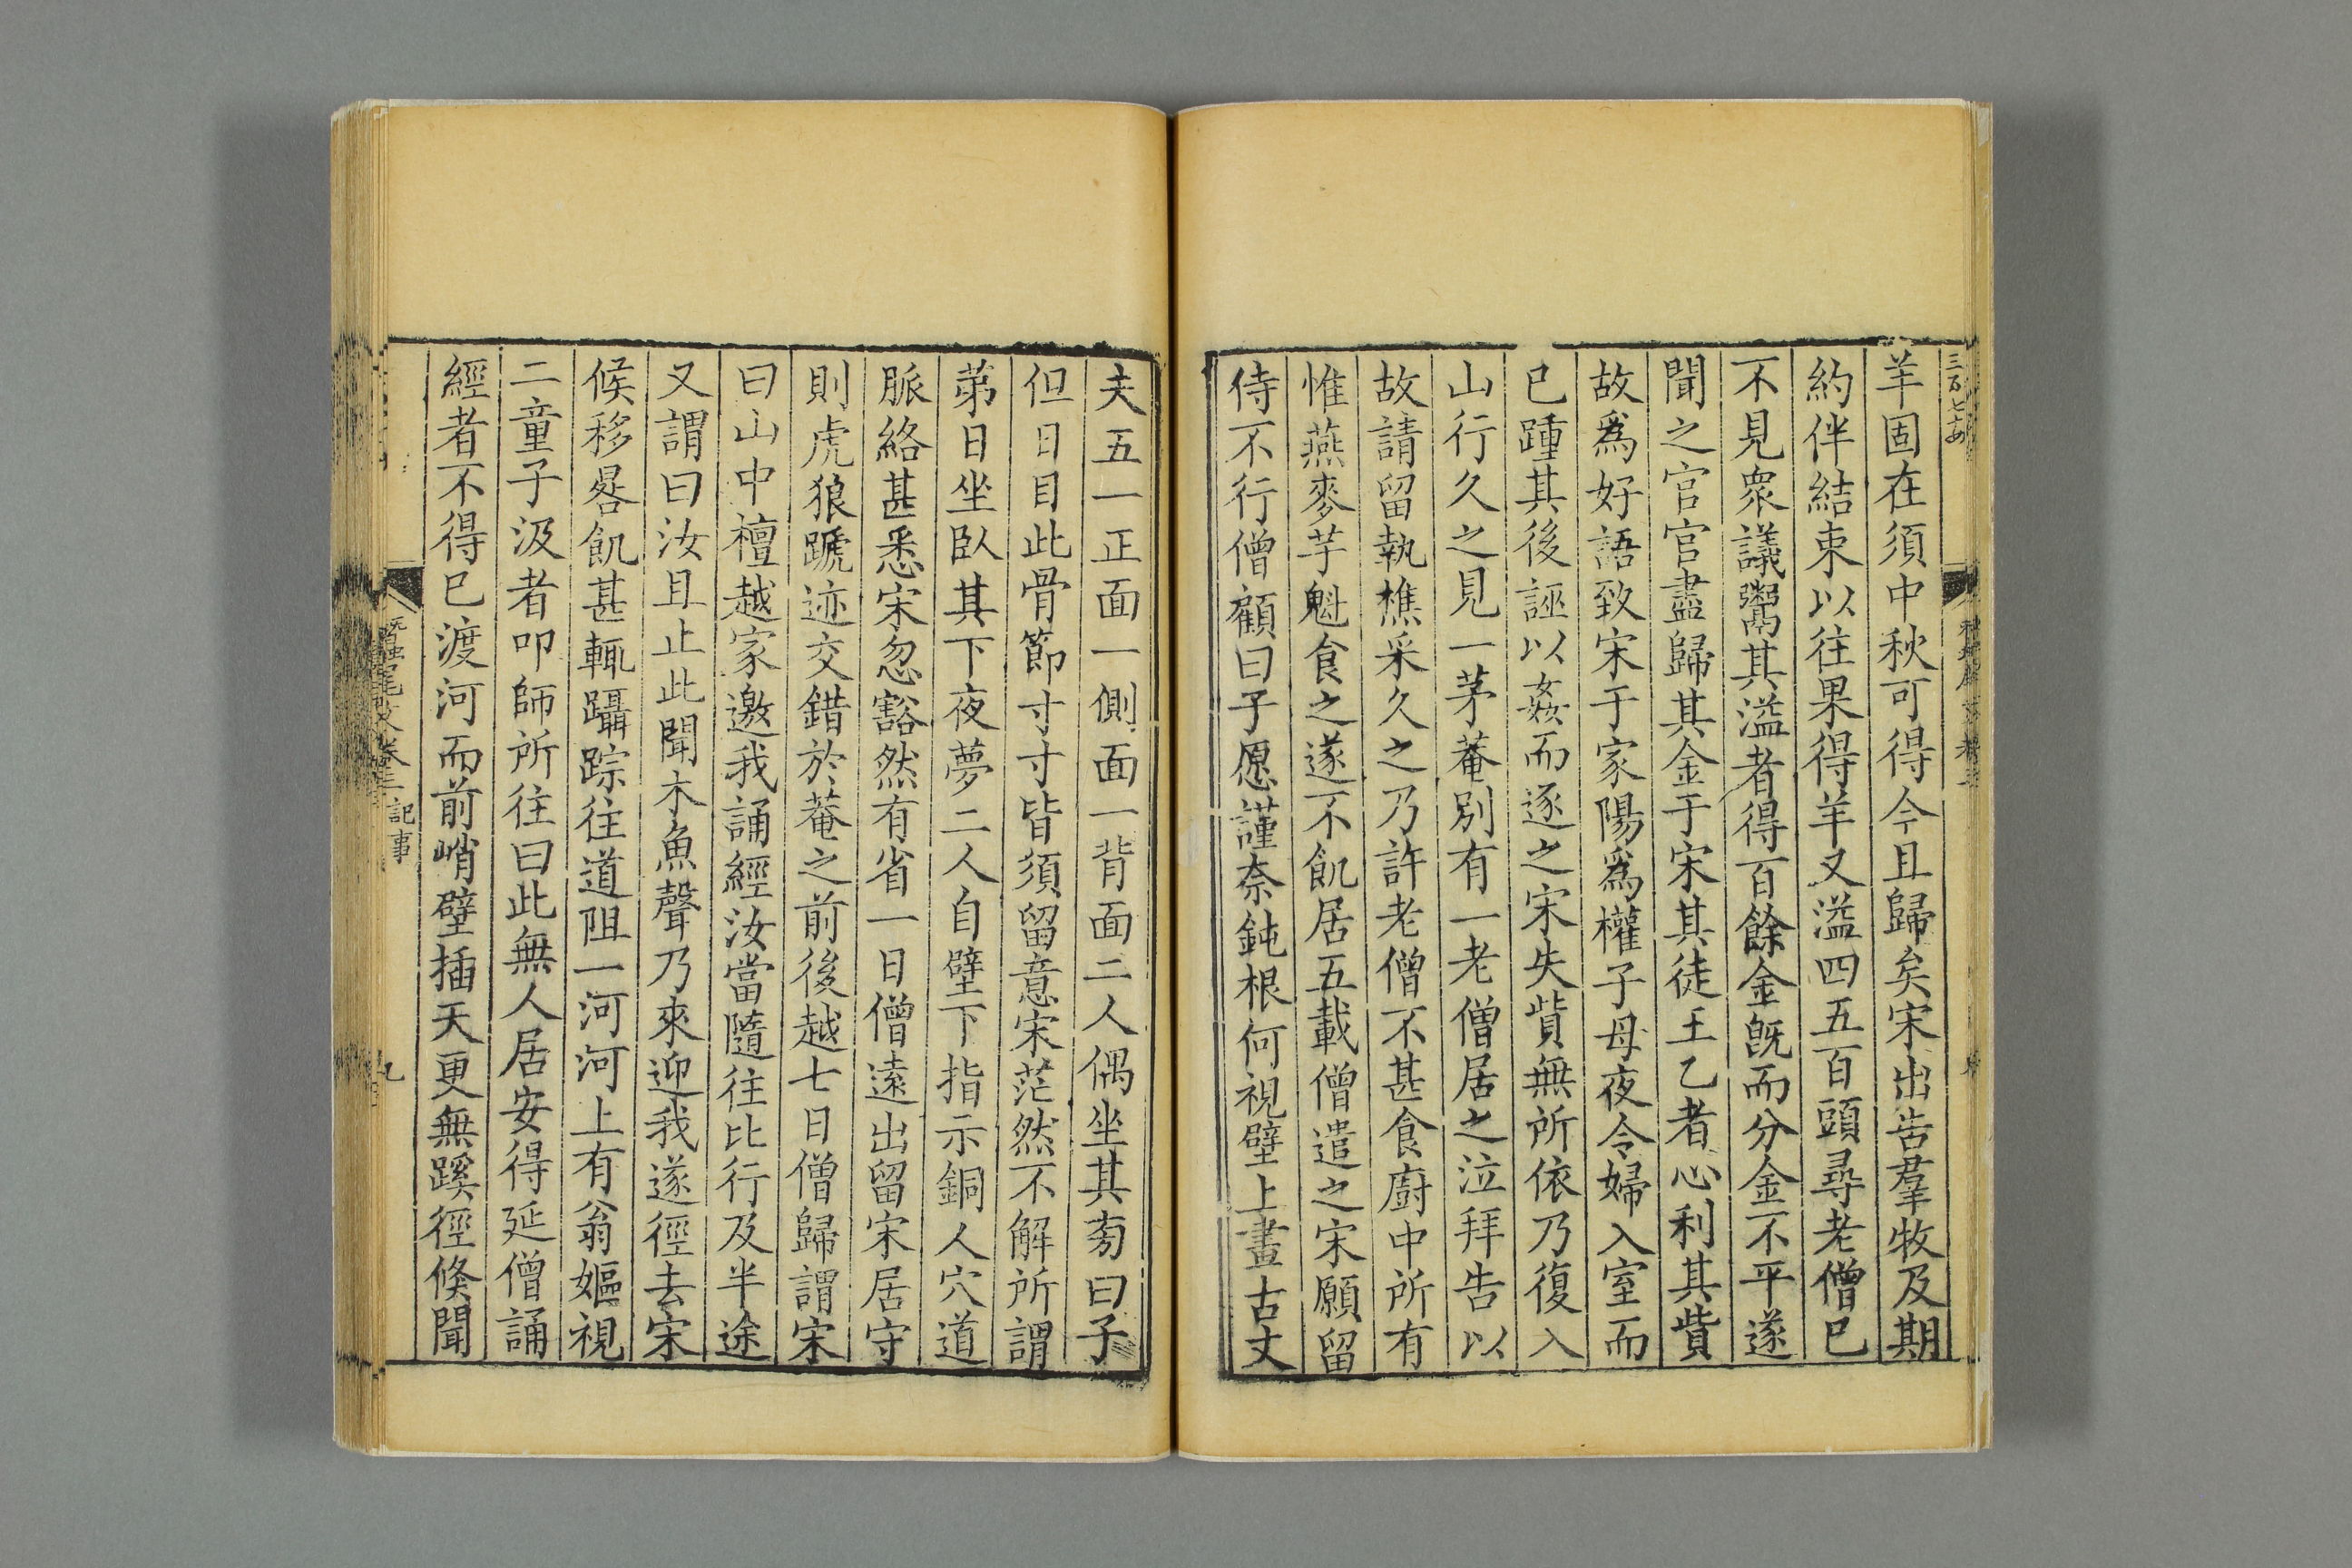 羊固在須中秋可得今且歸矣宋出告羣牧及期
約伴結束以往果得羊又溢四五百頭尋老僧已
不見衆議鬻其溢者得百餘金旣而分金不平遂
聞之官官盡歸其金于宋其徒王乙者心利其貲
故爲好語致宋于家陽爲權子母夜令婦入室而
已踵其後誣以姦而逐之宋失貲無所依乃復入
山行久之見一茅菴別有一老僧居之泣拜告以
故請留執樵采久之乃許老僧不甚食廚中所有
惟燕麥芋魁食之遂不飢居五載僧遣之宋願留
侍不行僧顧曰子愿謹奈鈍根何視壁上畫古丈
夫五一正面一側面一背面二人偶坐其旁曰子
但日目此骨節寸寸皆須留意宋茫然不解所謂
苐日坐臥其下夜夢二人自壁下指示銅人穴道
脈絡甚悉宋忽豁然有省一日僧遠出留宋居守
則虎狼蹏迹交錯於菴之前後越七日僧歸謂宋
曰山中檀越家邀我誦經汝當隨往比行及半途
又謂曰汝且止此聞木魚聲乃來迎我遂徑去宋
候移晷飢甚輒躡踪往道阻一河河上有翁嫗視
二童子汲者叩師所往曰此無人居安得延僧誦
經者不得已渡河而前峭壁插天更無蹊徑倏聞
蠶尾文卷三 記事
九